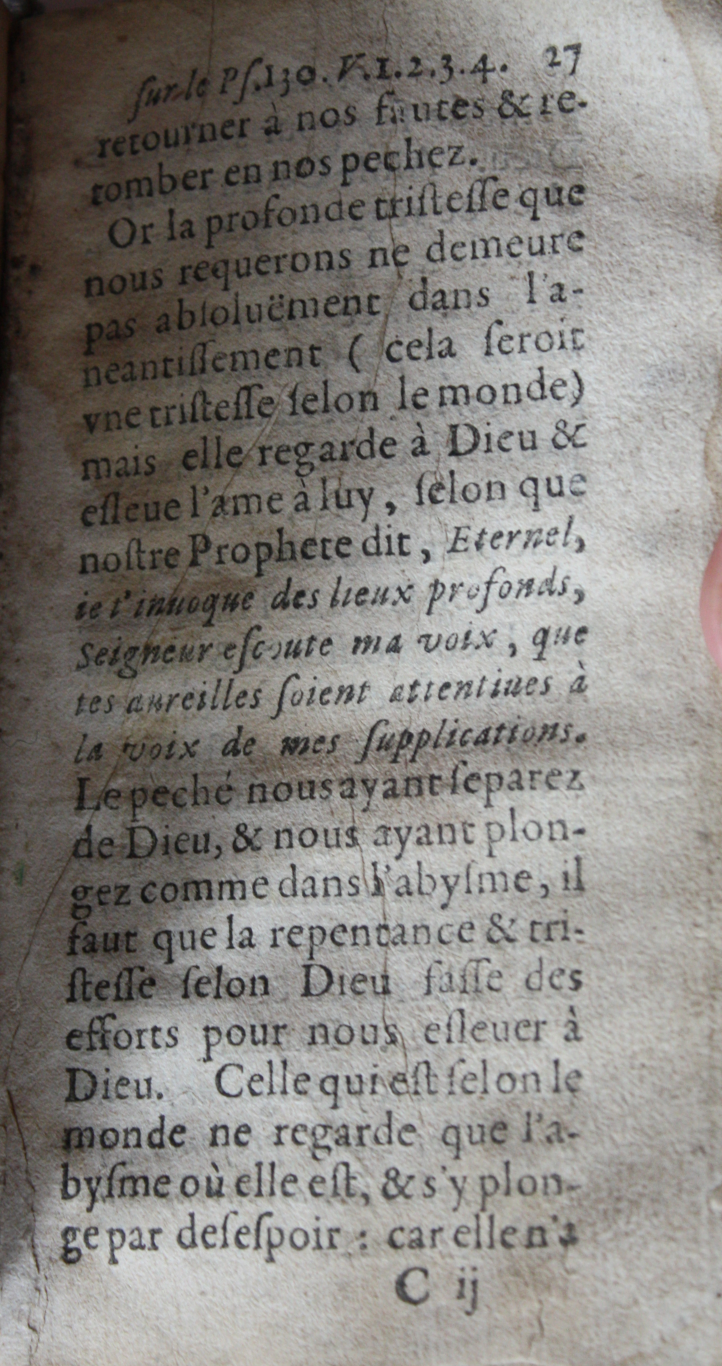 ſur le Pſ.130. V.1.2.3.4. 27
retourner à nos fautes & re-
tomber en nos pechez.
Or la profonde triſteſſe que
nous requerons ne demeure
pas abſoluëment dans l'a-
neantiſſement ( cela ſeroit
vne triſteſſe ſelon le monde)
mais elle regarde à Dieu &
eſleue l'ame à luy, ſelon que
noſtre Prophete dit, Eternel,
ie t'inuoque des lieux profonds,
Seigneur eſcoute ma voix, que
tes aureilles ſoient attentiues à
la voix de mes ſupplications.
Le peché nous ayant ſeparez
de Dieu, & nous ayant plon-
gez comme dans l'abyſme, il
faut que la repentance & tri-
ſteſſe ſelon Dieu faſſe des
efforts pour nous eſleuer à
Dieu. Celle qui eſt ſelon le
monde ne regarde que l'a-
byſme où elle eſt, & s'y plon-
ge par deſeſpoir : car elle n'a
C ij